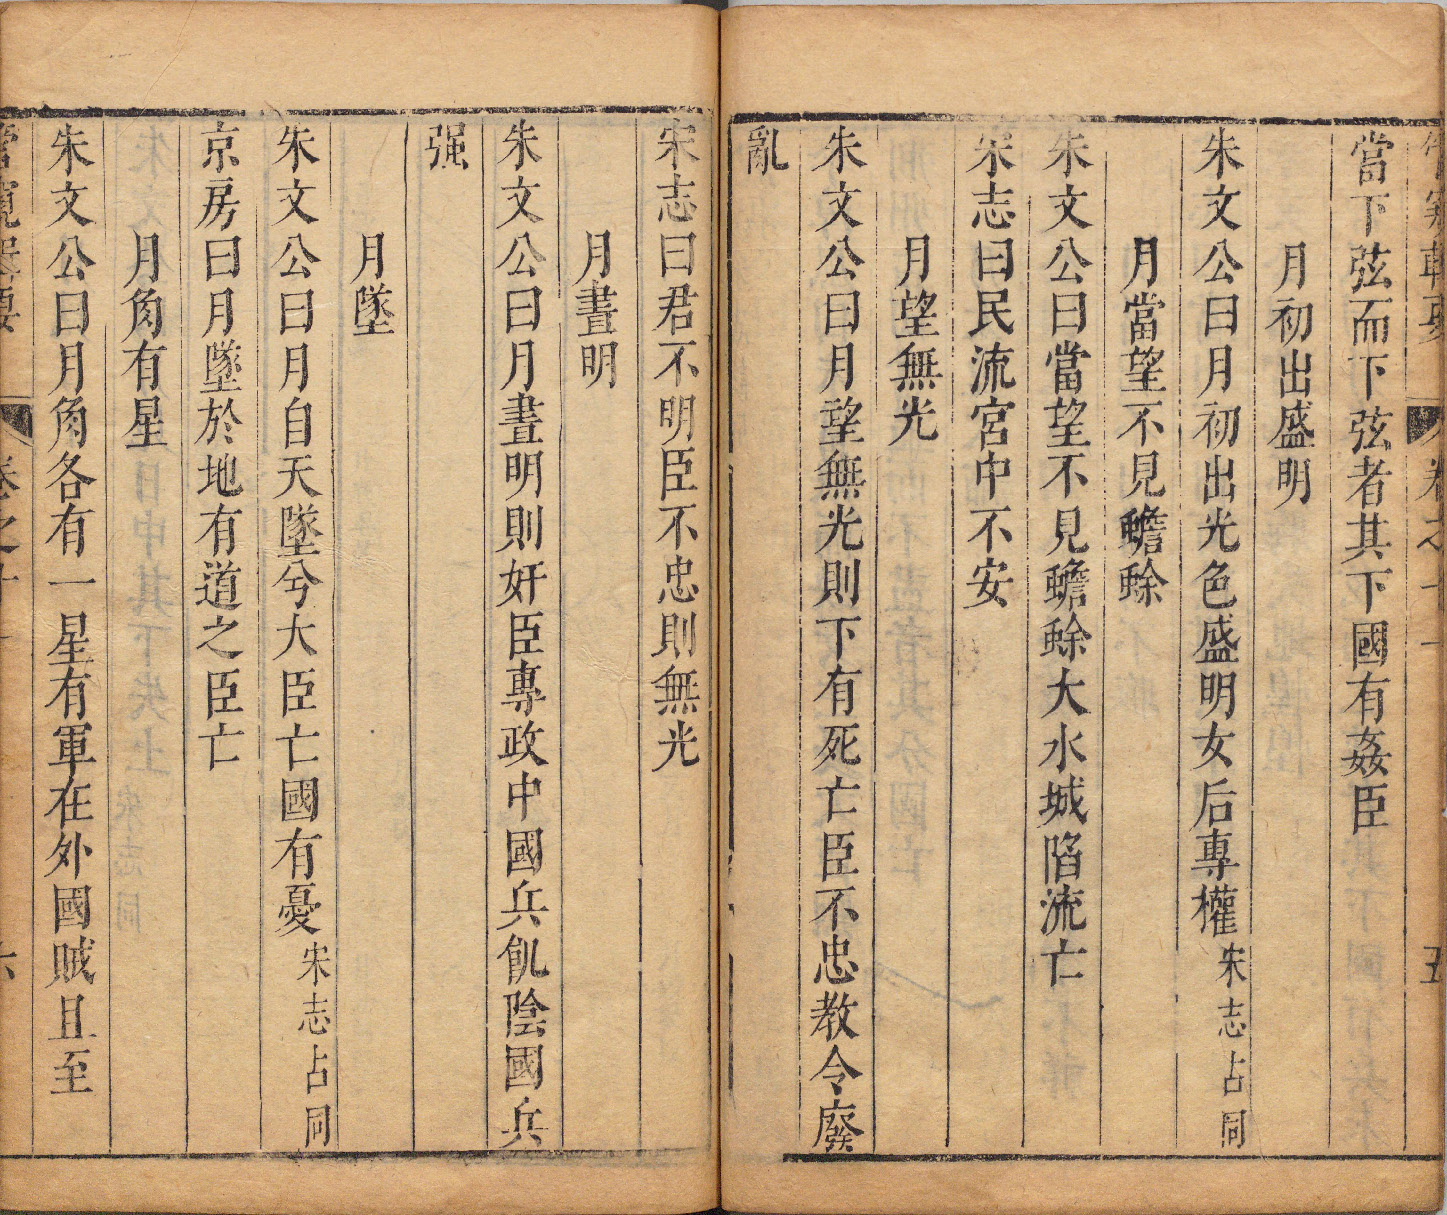 當下弦而不下弦者其下國有姦臣
月初出盛明
朱文公曰月初出光色盛明女后專權宋志占同
月當望不見蟾蜍
朱文公曰當望不見蟾蜍大水城陷流亡
宋志曰民流宮中不安
月望無光
朱文公曰月望無光則下有死亡臣不忠教令廢
亂
宋志曰君不明臣不忠則無光
月晝明
朱文公曰月晝明則奸臣專政中國兵飢陰國兵
强
月墜
朱文公曰月自天墜兮大臣亡國有憂宋志占同
京房曰月墜於地有道之臣亡
月角有星
朱文公曰月角各有一星有軍在外國賊且至